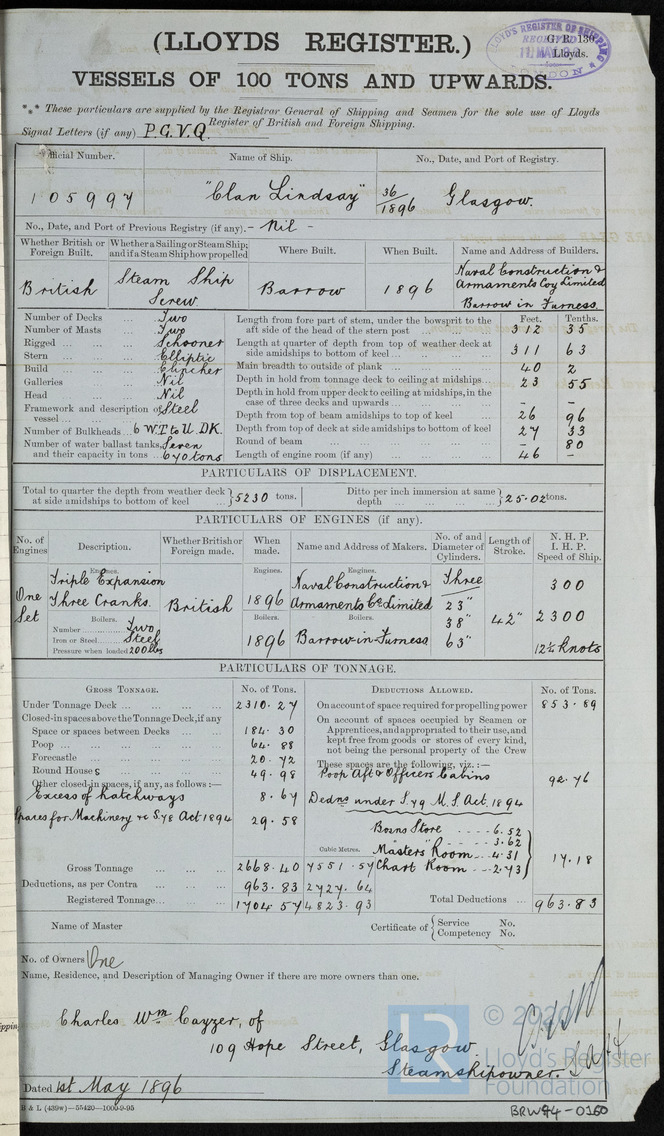 (LLOYDS REGISTER.)
G. R. 139.
Lloyds.
LLOYD'S REGISTER OF SHIPPING
RECEIVED
11. MAY
LONDON
VESSELS OF 100 TONS AND UPWARDS.
*** These particulars are supplied by the Registrar General of Shipping and Seamen for the sole use of Lloyds
Register of British and Foreign Shipping.
Signal Letters (if any) P.G.V.Q.
Official Number. Name of Ship. No., Date, and Port of Registry.
105997 "Clan Lindsay" 36/1896 Glasgow.
No., Date, and Port of Previous Registry (if any). - Nil -
Whether British or Foreign Built. Whether a Sailing or Steam Ship; and if a Steam Ship how propelled Where Built. When Built. Name and Address of Builders.
British Steam Ship Screw. Barrow 1896 Naval Construction & Armaments Coy Limited Barrow in Furness
Feet. Tenths.
Number of Decks ... Two
Number of Masts ... Two
Rigged ... Schooner
Stern ... Elliptic
Build ... Clincher
Galleries ... Nil
Head ... Nil
Framework and description of vessel ... Steel
Number of Bulkheads ... 6 W.T to U. DK.
Number of water ballast tanks, and their capacity in tons ... Seven 670 tons
Length from fore part of stem, under the bowsprit to the aft side of the head of the stern post ... 312 35
Length at quarter of depth from top of weather deck at side amidships to bottom of keel ... 311 63
Main breadth to outside of plank ... 40 2
Depth in hold from tonnage deck to ceiling at midships ... 23 55
Depth in hold from upper deck to ceiling at midships, in the case of three decks and upwards ... - -
Depth from top of beam amidships to top of keel ... 26 96
Depth from top of deck at side amidships to bottom of keel 27 33
Round of beam ... - 80
Length of engine room (if any) ... 46 -
PARTICULARS OF DISPLACEMENT.
Total to quarter the depth from weather deck at side amidships to bottom of keel ... } 5230 tons. Ditto per inch immersion at same depth ... } 25.02 tons.
PARTICULARS OF ENGINES (if any).
No. of Engines Description. Whether British or Foreign made. When made. Name and Address of Makers. No. of and Diameter of Cylinders. Length of Stroke. N. H. P. I. H. P. Speed of Ship.
Engines. Engines. Engines.
One Set Triple Expansion Three Cranks. British 1896 Naval Construction & Armaments Co Limited Three 23" 38" 63" 42" 300 2300 12¼ knots
Boilers. Boilers. Boilers.
Number ... Two
Iron or Steel ... Steel
Pressure when loaded 200 lbs
1896 Barrow-in-Furness
PARTICULARS OF TONNAGE.
GROSS TONNAGE. No. of Tons.
Under Tonnage Deck ... 2310.27
Closed-in spaces above the Tonnage Deck, if any
Space or spaces between Decks ... 184.30
Poop ... 64.88
Forecastle ... 20.72
Round Houses ... 49.98
Other closed-in spaces, if any, as follows :—
Excess of hatchways 8.67
Spaces for Machinery &c S.78 Act 1894 29.58
Cubic Metres.
Gross Tonnage ... 2668.40 7551.57
Deductions, as per Contra ... 963.83 2727.64
Registered Tonnage ... 1704.57 4823.93
DEDUCTIONS ALLOWED. No. of Tons.
On account of space required for propelling power 853.89
On account of spaces occupied by Seamen or Apprentices, and appropriated to their use, and kept free from goods or stores of every kind, not being the personal property of the Crew
These spaces are the following, viz. :—
Poop Aft & Officers Cabins 92.76
Dedns under S.79 M.S. Act. 1894
Bosns Store .... 6.52
" .... 3.62
Masters Room ... 4.31
Chart Room ... 2.73
} 17.18
Total Deductions ... 963.83
Name of Master Certificate of { Service No. Competency No.
No. of Owners One
Name, Residence, and Description of Managing Owner if there are more owners than one.
Charles Wm Cayzer, of
109 Hope Street, Glasgow
Steamshipowner.
Dated 1st May 1896
B & L (439w)—55420—1000-9-95
LR
Lloyd's Register
Foundation
BRW94-0160